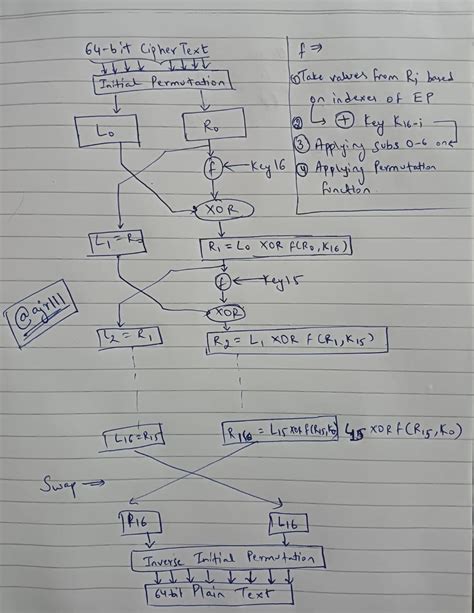 64-bit Cipher Text
Initial Permutation
L0
R0
f
Key16
XOR
L1 = R0
R1 = L0 XOR f(R0, K16)
f
Key15
XOR
L2 = R1
R2 = L1 XOR f(R1, K15)
L16 = R15
R16 = L15 XOR f(R15, K0)
L15 XOR f(R15, K0)
Swap →
R16
L16
Inverse Initial Permutation
64 bit Plain Text
f ⇒
① Take values from Ri based
on indexes of EP
② → + Key K16-i
③ Applying Subs 0-6 one
④ Applying Permutation
function
@ajr111